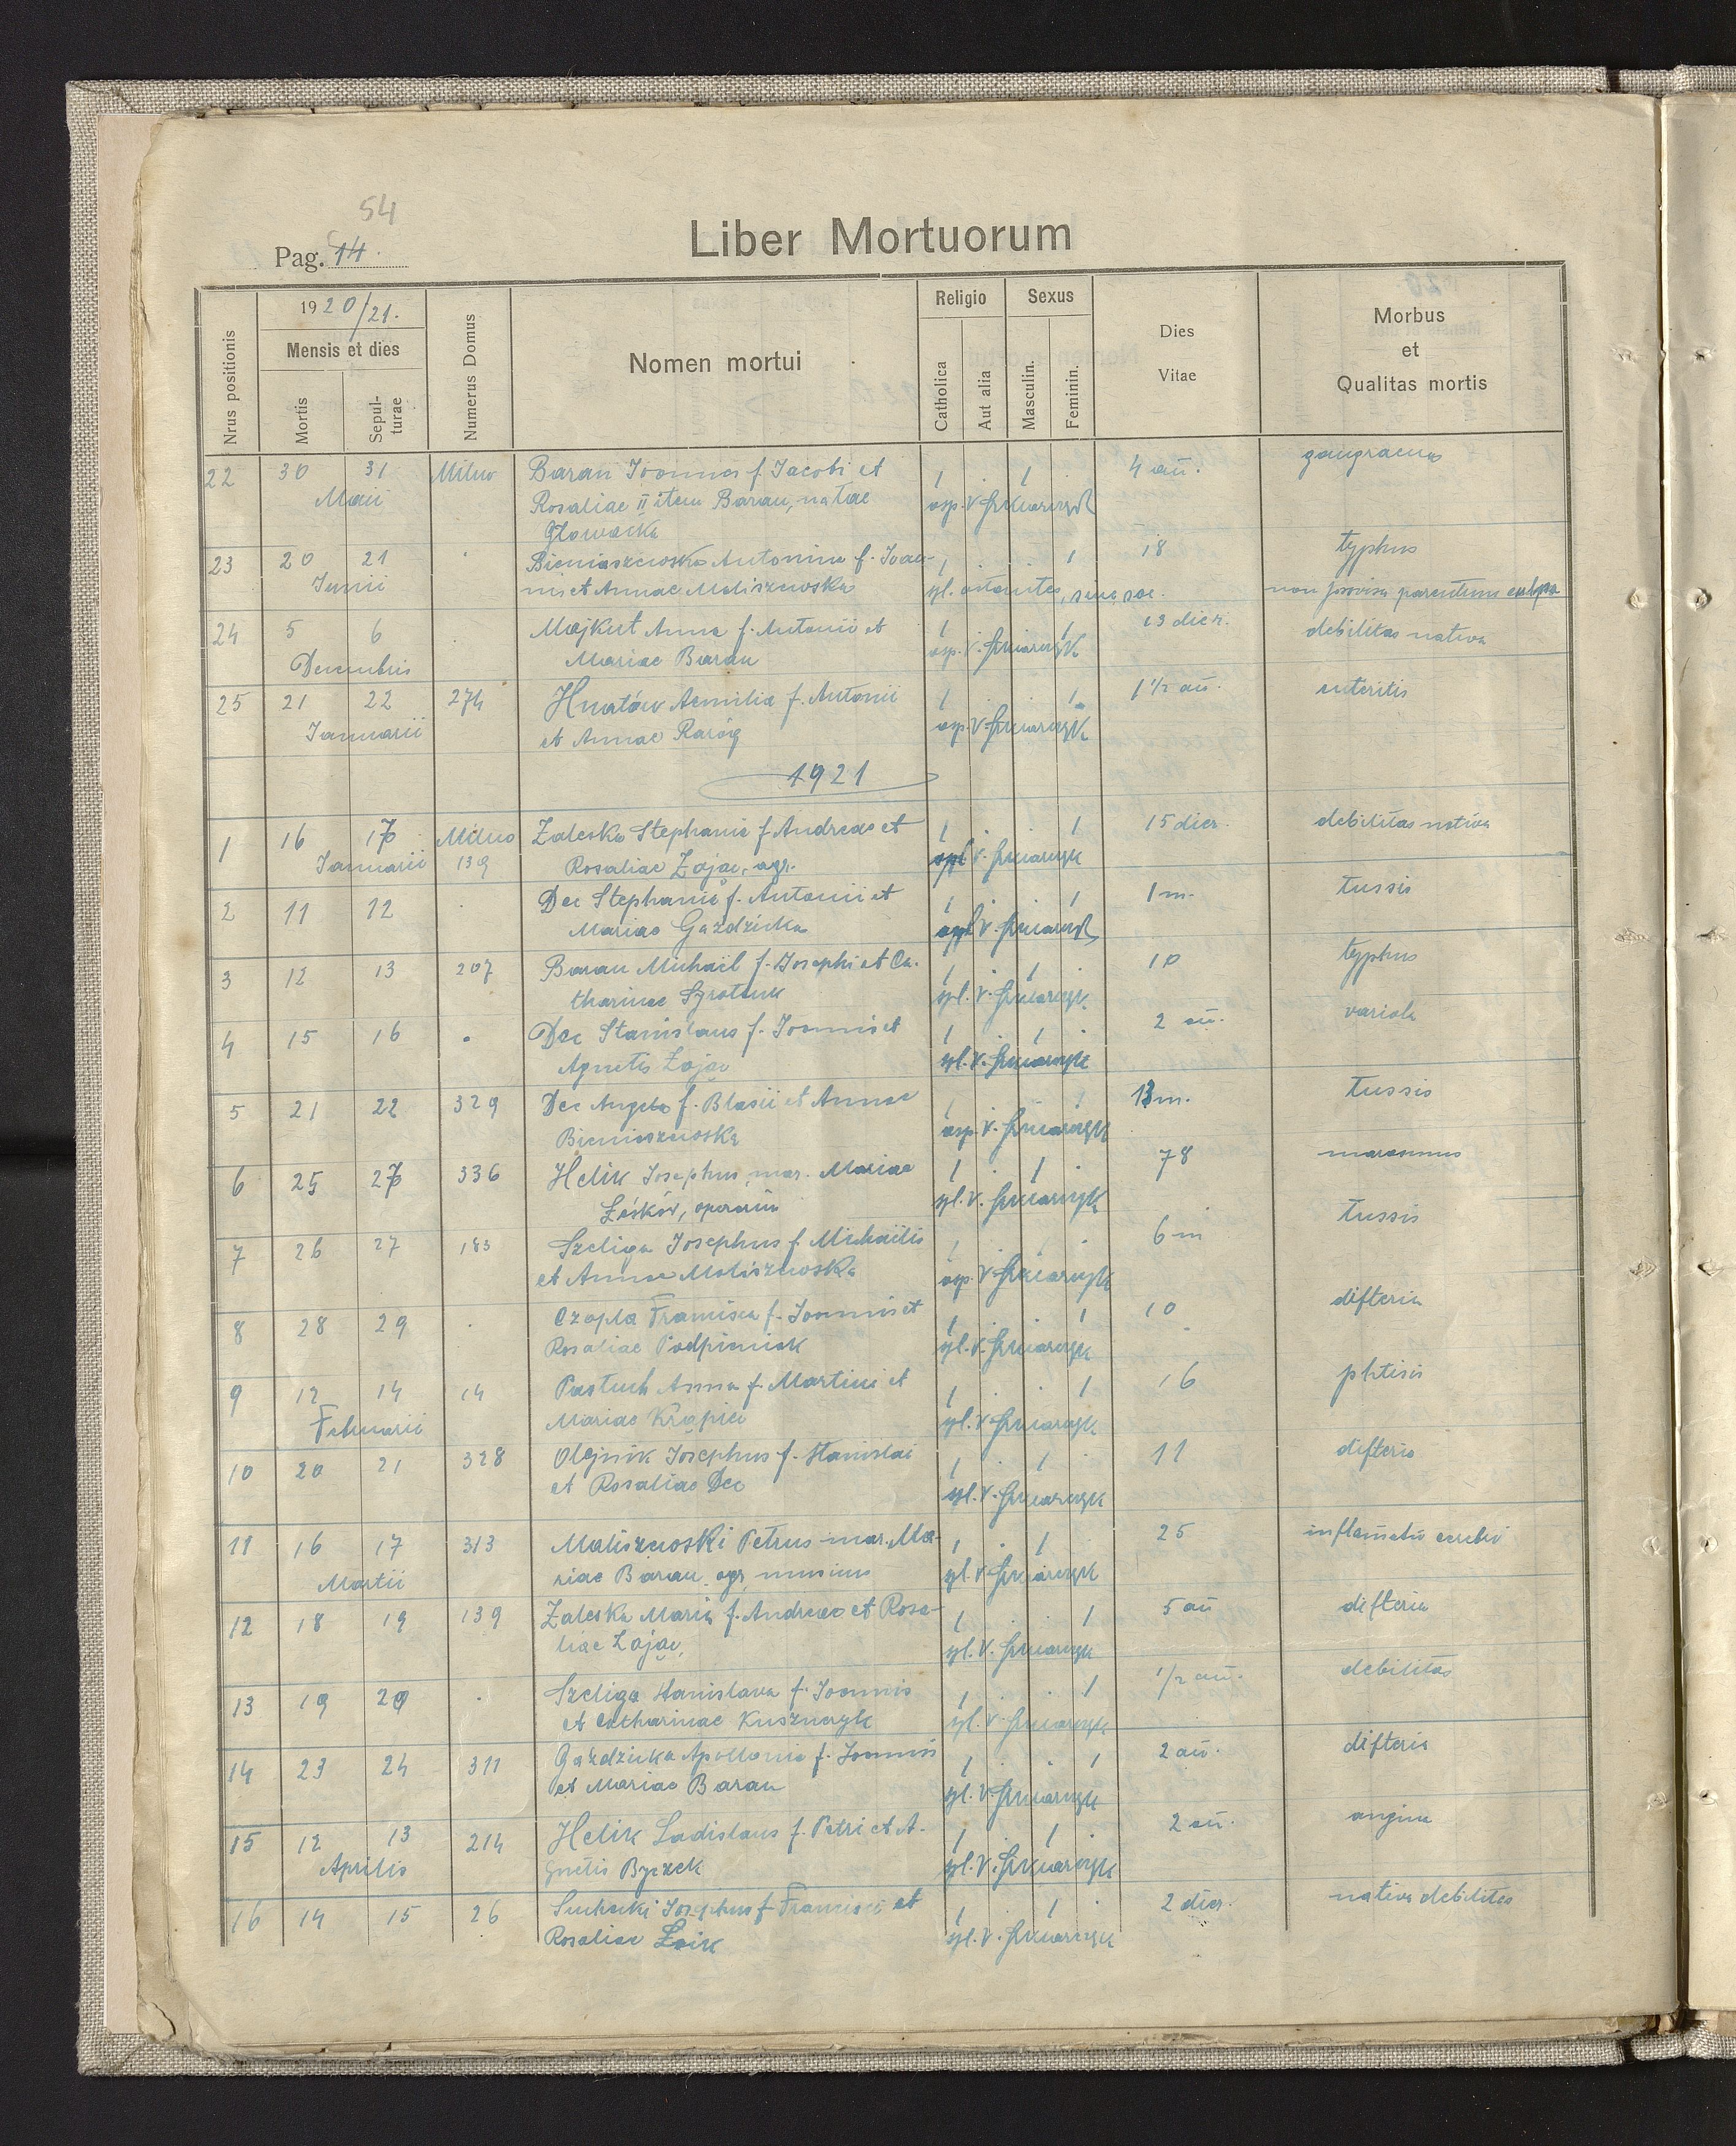 54
Pag. 14.
Liber Mortuorum
Nrus positionis
1920/21.
Mensis et dies
Mortis
Sepul-
turae
Numerus Domus
Nomen mortui
Religio
Catholica
Aut alia
Sexus
Masculin.
Feminin.
Dies
Vitae
Morbus
et
Qualitas mortis
22 30 31 Milno Baran Joannes f. Jacobi et 1 . 1 . 4 an.
Maii Rosaliae II item Baran, natae
Głowacka
23 20 21 . Bieniaszewska Antonina f. Joan- 1 . . 1 18 typhus
Junii nis et Annae Maliszewska non provisa parentum culpa
24 5 6 . Majkut Anna f. Antonii et 1 . . 1 13 dier. debilitas nativa
Decembris Mariae Baran
25 21 22 274 Hnatów Aemilia f. Antonii 1 . . 1 1 1/2 an. enteritis
Januarii et Annae Raróg
1921
1 16 17 Milno Zaleska Stephania f. Andreae et 1 . . 1 15 dier. debilitas nativa
Januarii 139 Rosaliae Zając, agr.
2 11 12 . Dec Stephania f. Antonii et 1 . . 1 1 m. tussis
Mariae Gaździcka
3 12 13 207 Baran Michael f. Josephi et Ca- 1 . 1 . 10 typhus
tharinae
4 15 16 . Dec Stanislaus f. Joannis et 1 . 1 . 2 an. variola
Agnetis Zając
5 21 22 329 Dec Angela f. Blasii et Annae 1 . . 1 13 m. tussis
Bieniaszewska
6 25 27 336 Helik Josephus, mar. Mariae 1 . 1 . 78 marasmus
7 26 27 183 Szeliga Josephus f. Michaelis 1 . 1 . 6 m tussis
et Annae Maliszewska
8 28 29 . Czapla Francisca f. Joannis et 1 . . 1 10 difteria
Rosaliae Podpiniak
9 12 14 14 Pastuch Anna f. Martini et 1 . . 1 16 phtisis
Februarii Mariae Krąpiec
10 20 21 328 Olejnik Josephus f. Stanislai 1 . 1 . 11 difteria
et Rosaliae Dec
11 16 17 313 Maliszewski Petrus mar. Ma- 1 . 1 . 25 cerebri
Martii riae Baran, agr.
12 18 19 139 Zaleska Maria f. Andreae et Rosa- 1 . . 1 5 an difteria
liae Zając
13 19 20 . Szeliga Stanislava f. Joannis 1 . . 1 1/2 an. debilitas
et Catharinae Kuszneryk
14 23 24 311 Gaździcka Apollonia f. Joannis 1 . . 1 2 an. difteria
et Mariae Baran
15 12 13 214 Helik Ladislaus f. Petri et A- 1 . 1 . 2 an. angina
Aprilis gnetis Byczek
16 14 15 26 Suchecki Josephus f. Francisci et 1 . 1 . 2 dier. nativa debilitas
Rosaliae